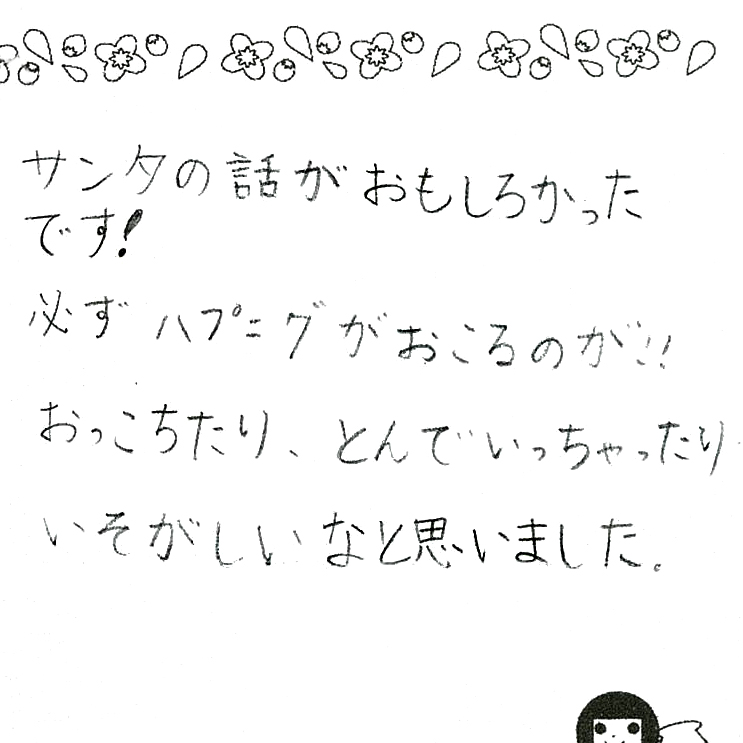 サンタの話がおもしろかった
です!
必ずハプニグがおこるのが!!
おっこちたり、とんでいっちゃったり
いそがしいなと思いました。